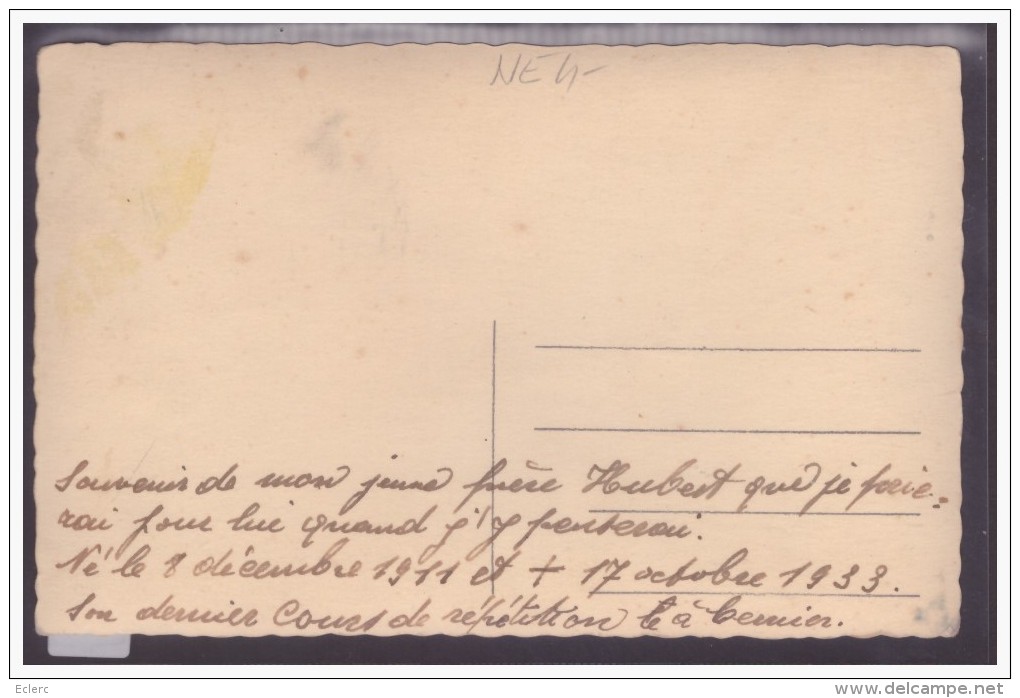 NE 4-
Souvenir de mon jeune frère Hubert que je prie=
rai pour lui quand j'y penserai.
Né le 8 décembre 1911 et + 17 octobre 1933.
Son dernier Cours de répétition à Cernier.
Eclerc
www.delcampe.net